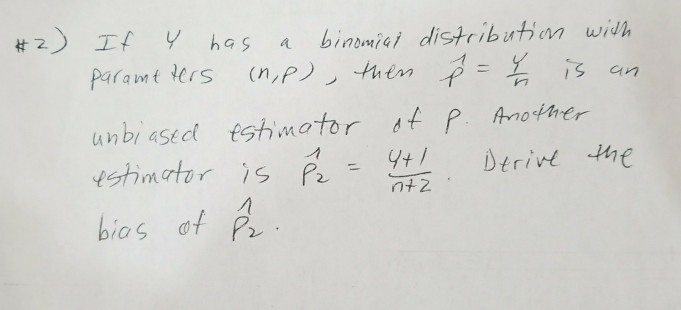 #2) If Y has a binomial distribution with
parameters (n,p), then p̂ = Y/n is an
unbiased estimator of p. Another
estimator is p̂₂ = Y+1/n+2. Derive the
bias of p̂₂.